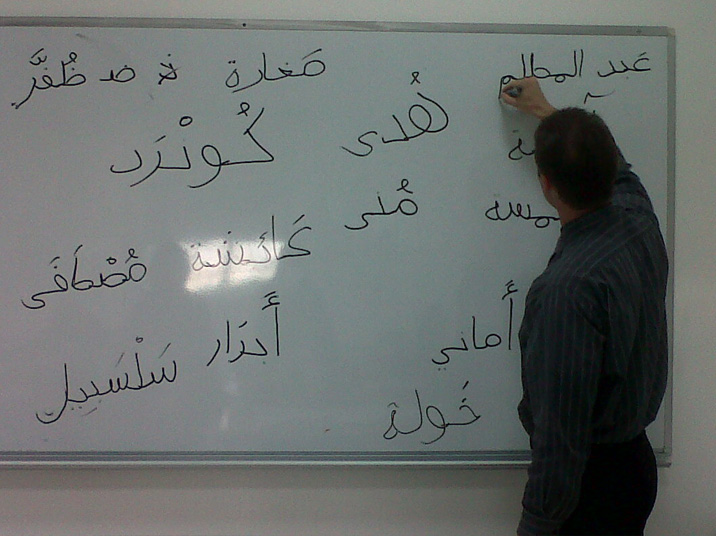 عَبد المطلم مَغارة ضد ظُفرٌ
هُدى كُونْرَد
مُنى عَائشة مُصْطَفَى
أَماني أَبرَار سَلْسَبيل
خَولة